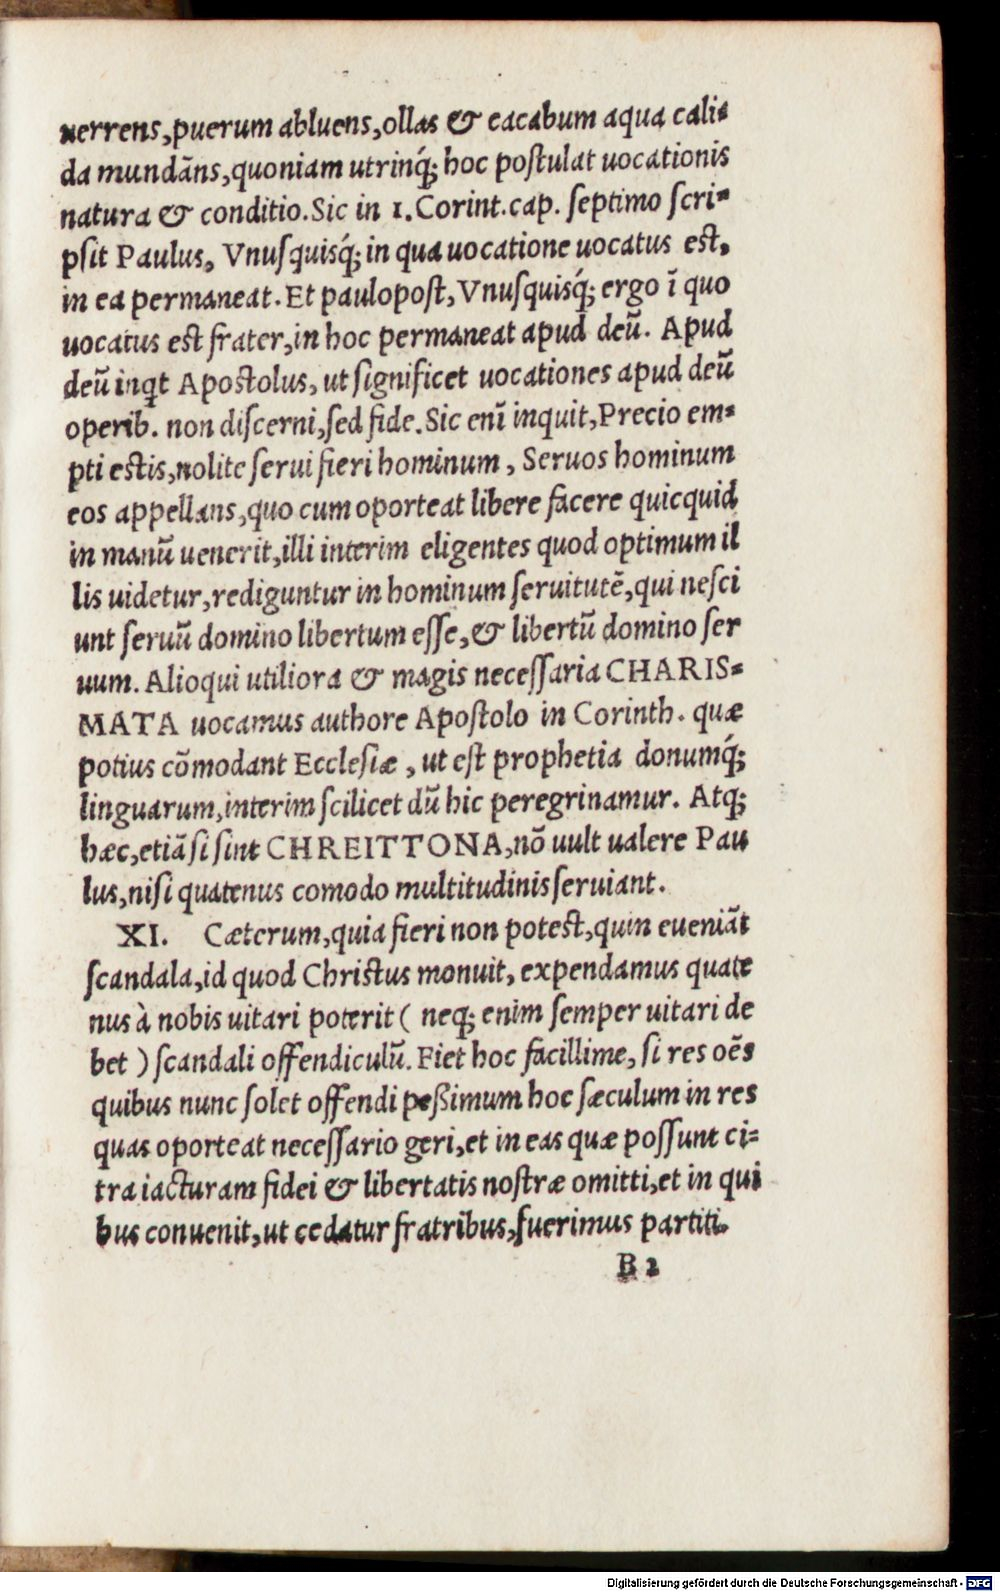 uerrens,puerum abluens,ollas & cacabum aqua cali-
da mundãns,quoniam utrinq́; hoc poſtulat uocationis
natura & conditio.Sic in 1.Corint.cap. ſeptimo ſcri-
pſit Paulus, Vnuſquisq́; in qua uocatione uocatus est,
in ea permaneat. Et paulopoſt,Vnuſquisq́; ergo ĩ quo
uocatus est frater,in hoc permaneat apud deũ. Apud
deũ inqt Apoſtolus, ut ſignificet uocationes apud deũ
operib. non diſcerni,ſed fide.Sic enĩ inquit,Precio em-
pti estis,nolite ſerui fieri hominum, Seruos hominum
eos appellans,quo cum oporteat libere facere quicquid
in manũ uenerit,illi interim eligentes quod optimum il
lis uidetur,rediguntur in hominum ſeruitutẽ,qui neſci
unt ſeruũ domino libertum eſſe,& libertũ domino ſer
uum. Alioqui utiliora & magis neceſſaria CHARIS-
MATA uocamus authore Apoſtolo in Corinth. quæ
potius cõmodant Eccleſiæ, ut eſt prophetia donumq́;
linguarum,interim ſcilicet dũ hic peregrinamur. Atq;
hæc,etiã ſi ſint CHREITTONA,nõ uult ualere Pau
lus,niſi quatenus comodo multitudinis ſeruiant.
XI. Cæterum,quia fieri non potest,quin eueniãt
ſcandala,id quod Christus monuit, expendamus quate
nus à nobis uitari poterit ( neq; enim ſemper uitari de
bet ) ſcandali offendiculũ. Fiet hoc facillime, ſi res oẽs
quibus nunc ſolet offendi peßimum hoc ſæculum in res
quas oporteat neceſſario geri,et in eas quæ poſſunt ci-
tra iacturam fidei & libertatis nostræ omitti,et in qui
bus conuenit,ut cedatur fratribus,fuerimus partiti.
B 2
Digitalisierung gefördert durch die Deutsche Forschungsgemeinschaft - DFG